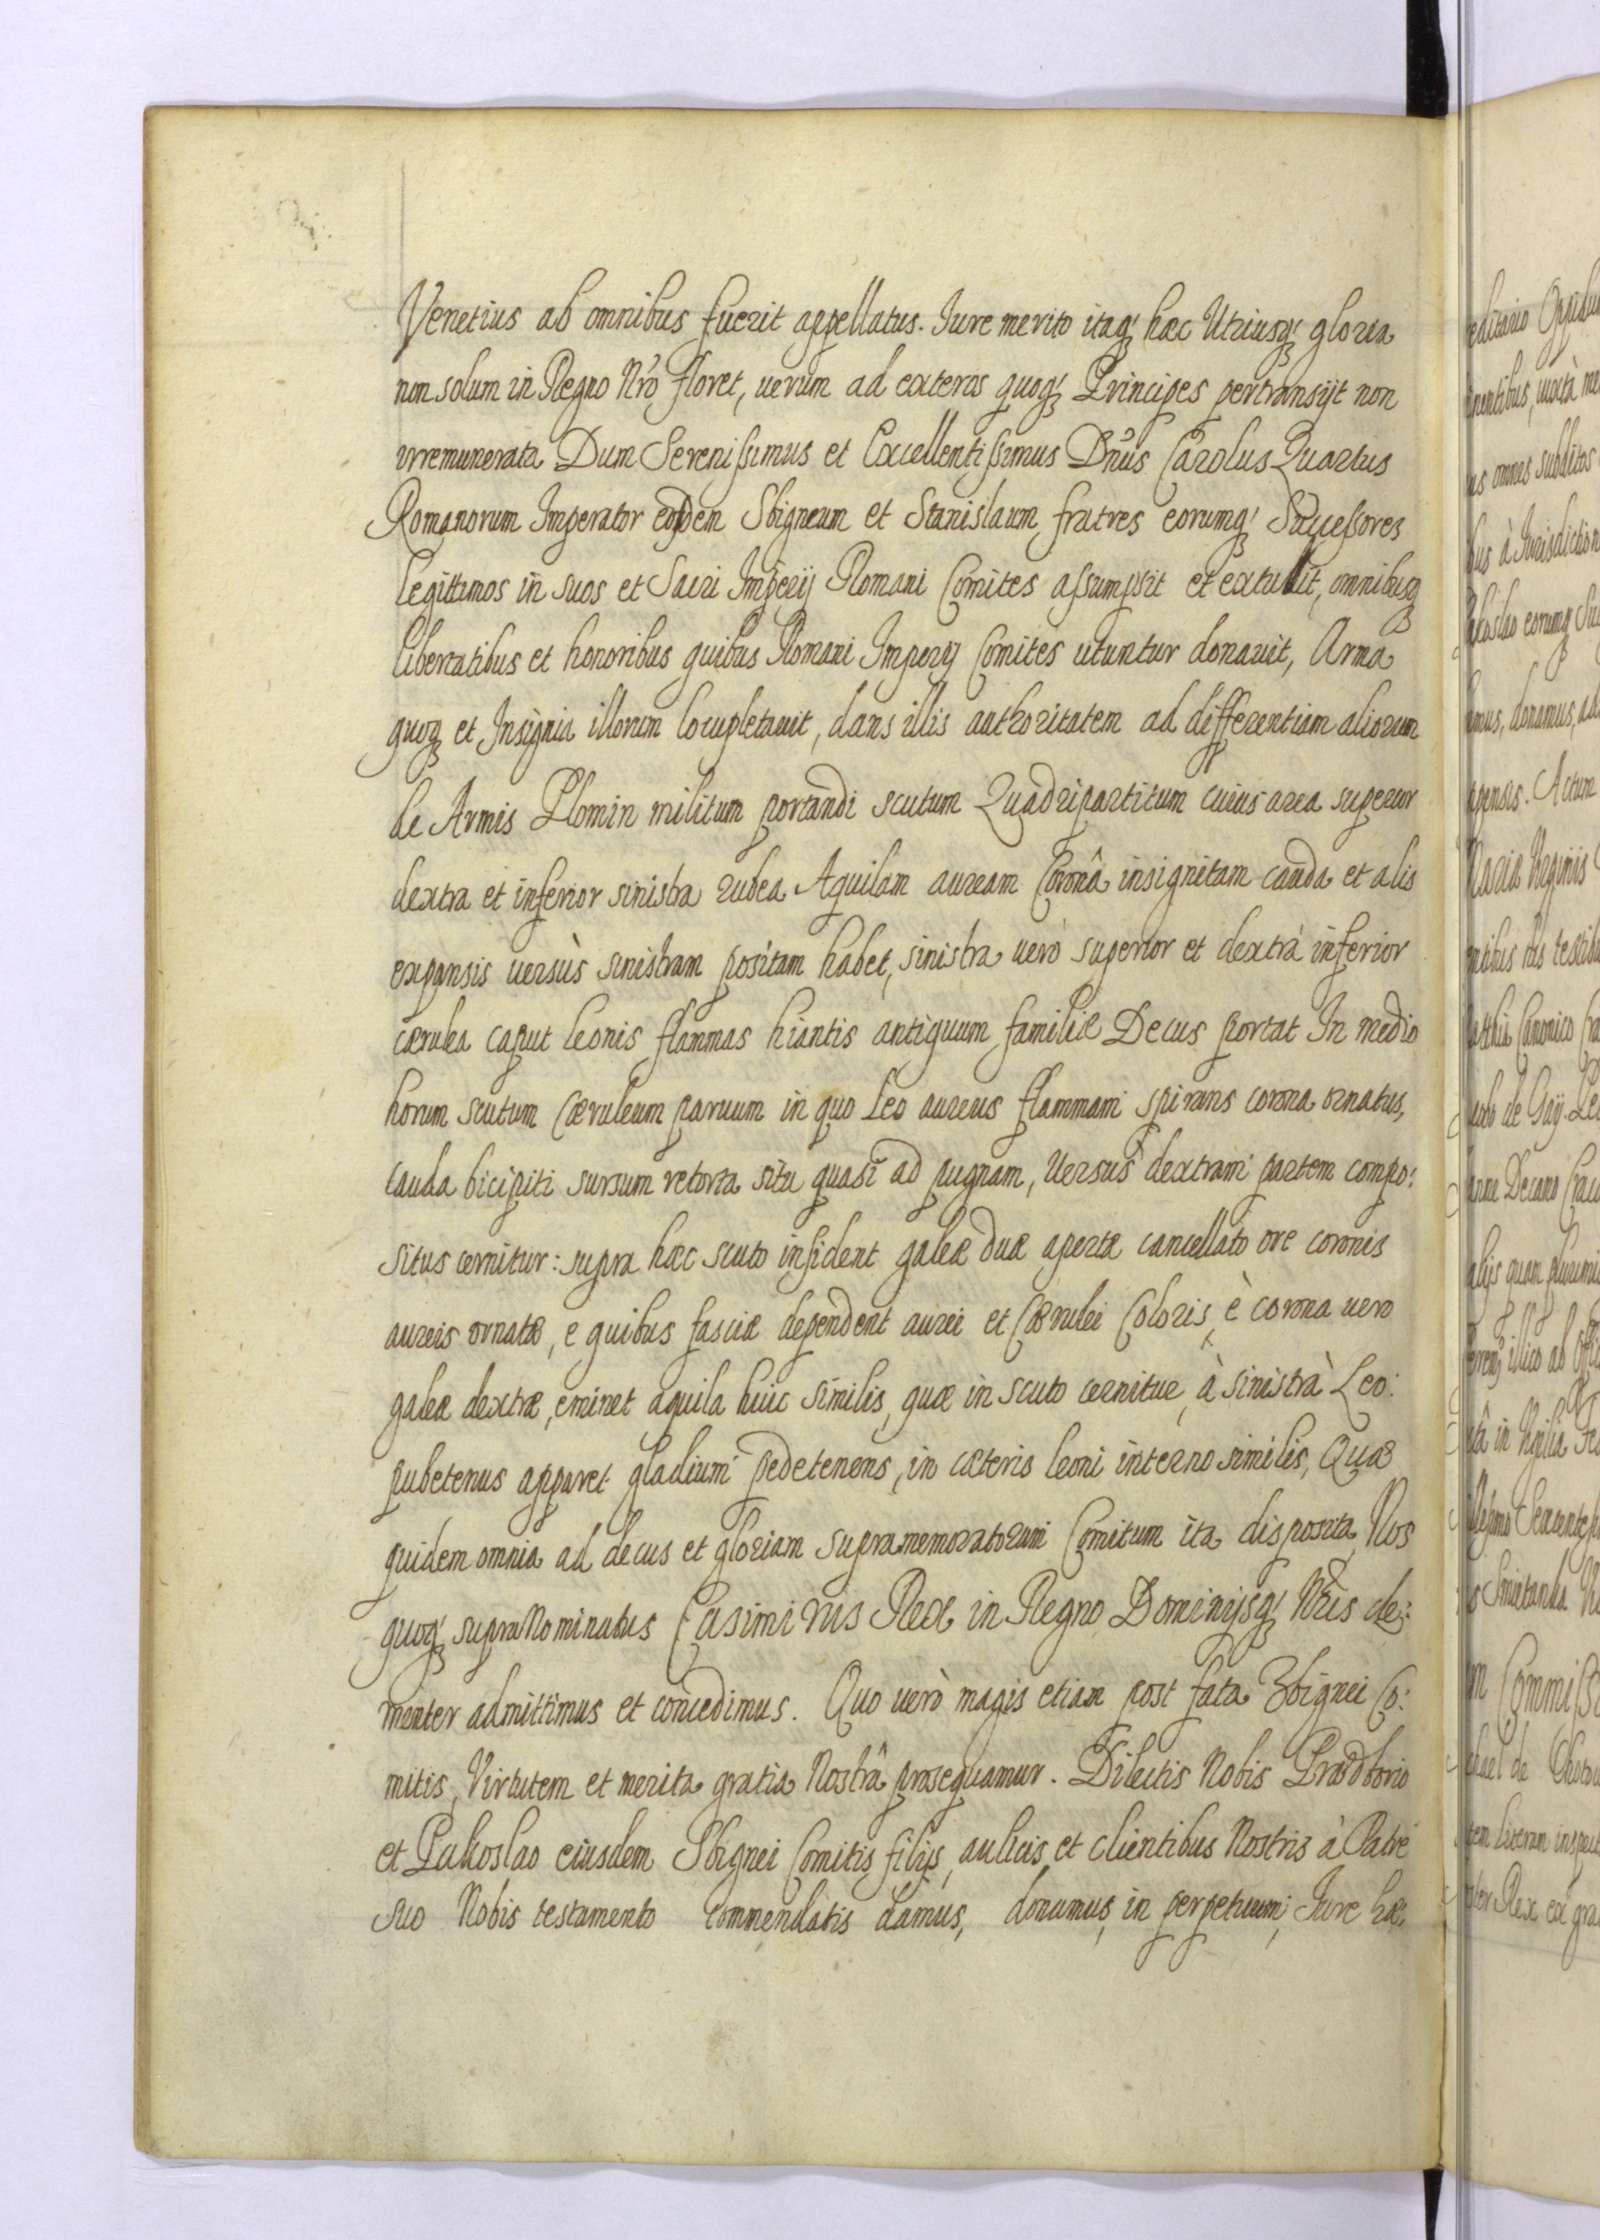 Venetius ab omnibus fuerit appellatus. Iure merito itaq; hæc Utriusq; gloria
non solum in Regno Nr̃o floret, uerum ad exteros quoq; Principes pertransijt non
irremunerata Dum Serenissimus et Excellentissimus Dñus Carolus Quartus
Romanorum Imperator eosdem Sbigneum et Stanislaum fratres eorumq; Successores
legittimos in suos et Sacri Imperij Romani Comites assumpsit et extulit, omnibusq;
libertatibus et honoribus quibus Romani Imperij Comites utuntur donauit, Arma
quoq; et Insignia illorum locupletauit, dans illis authoritatem ad differentiam aliorum
de Armis Plomin militum portandi scutum Quadripartitum cuius area superior
dextra et inferior sinistra rubea Aquilam auream Coronâ insignitam cauda et alis
expansis uersùs sinistram positam habet, sinistra uerò superior et dextrà inferior
cærulea caput leonis flammas hiantis antiquum familiæ Decus portat In medio
horum scutum Cæruleum paruum in quo Leo aureus flammam spirans corona ornatus,
cauda bicipiti sursum retorta situ quasi ad pugnam, Uersus dextram partem compo:
situs cernitur: supra hæc scuto insident galeæ duæ apertæ cancellato ore coronis
aureis ornatæ, e quibus fasciæ dependent aurei et Cærulei Coloris, è corona uero
galeæ dextræ, eminet aquila huic similis, quæ in scuto cernitur, à sinistrà Leo:
pubetenus apparet gladium pedetenens, in cæteris leoni interno similis, Quæ
quidem omnia ad decus et gloriam supramemoratorum Comitum ita disposita, Nos
quoq; supra Nominatus Casimirus Rex in Regno Dominijsq; Nr̃is cle:
menter admittimus et concedimus. Quo uerò magis etiam post fata Zbignei Co:
mitis, Virtutem et merita gratia Nostrâ prosequamur. Dilectis Nobis Prædborio
et Pakoslao eiusdem Sbignei Comitis filijs, aulicis et clientibus Nostris à Patre
suo Nobis testamento commendatis damus, donamus, in perpetuum, Iure hæ: